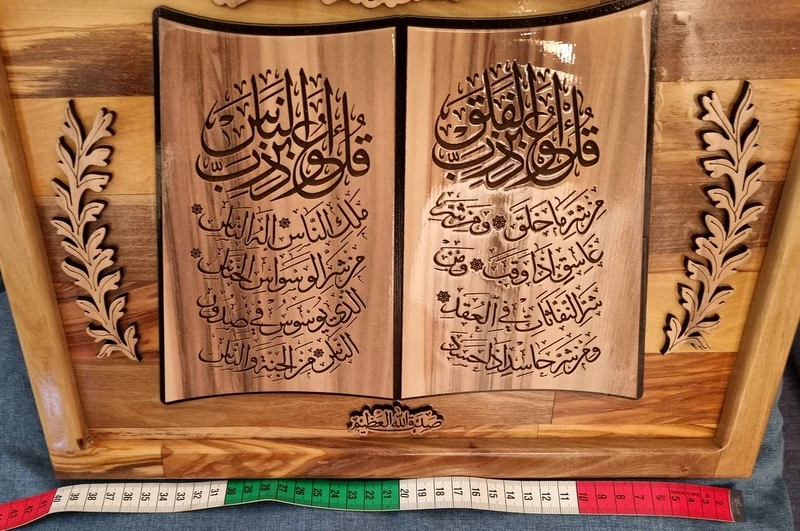 قل أعوذ برب الفلق
من شر ما خلق ۞ ومن شر
غاسق اذا وقب ۞ ومن
شر النفاثات في العقد ۞
ومن شر حاسد اذا حسد
قل أعوذ برب الناس
ملك الناس ۞ اله الناس ۞
من شر الوسواس الخناس ۞
الذي يوسوس في صدور
الناس ۞ من الجنة والناس
صدق الله العظيم
40 39 38 37 36 35 34 33 32 31 30 29 28 27 26 25 24 23 22 21 20 19 18 17 16 15 14 13 12 11 10 9 8 7 6 5 4 3 2